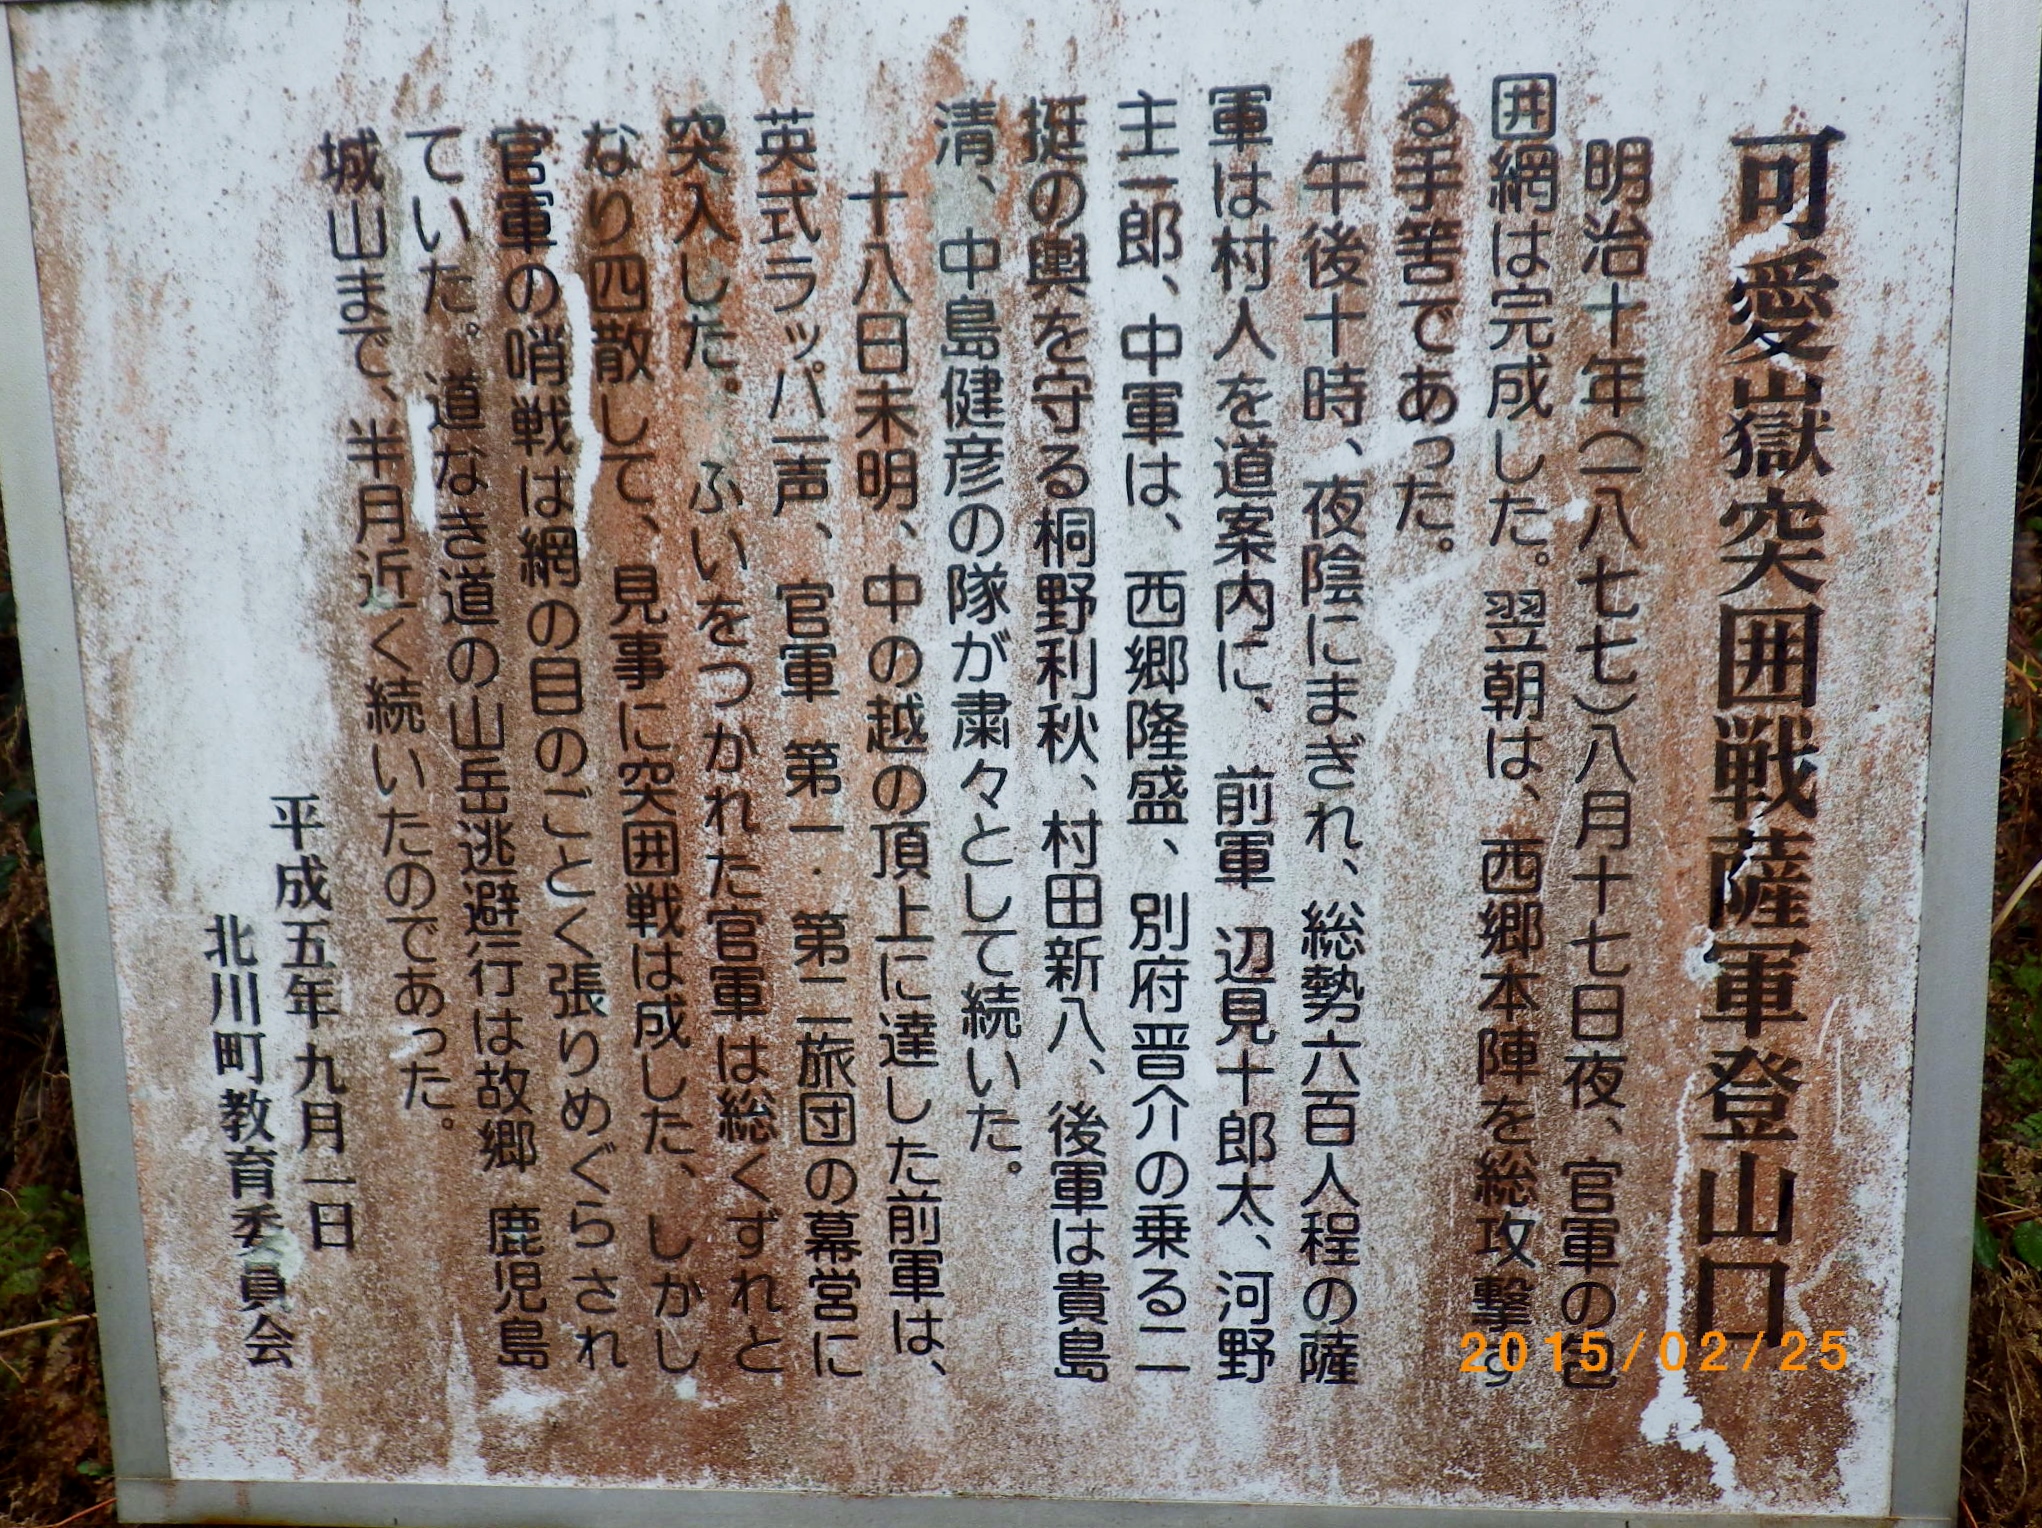 可愛嶽突囲戦薩軍登山口
明治十年(一八七七)八月十七日夜、官軍の包
囲網は完成した。翌朝は、西郷本陣を総攻撃す
る手筈であった。
午後十時、夜陰にまぎれ、総勢六百人程の薩
軍は村人を道案内に、前軍 辺見十郎太、河野
主一郎、中軍は、西郷隆盛、別府晋介の乗る二
挺の輿を守る桐野利秋、村田新八、後軍は貴島
清、中島健彦の隊が粛々として続いた。
十八日未明、中の越の頂上に達した前軍は、
英式ラッパ一声、官軍 第一・第二旅団の幕営に
突入した。ふいをつかれた官軍は総くずれと
なり四散して、見事に突囲戦は成した、しかし
官軍の哨戦は網の目のごとく張りめぐらされ
ていた。道なき道の山岳逃避行は故郷 鹿児島
城山まで、半月近く続いたのであった。
平成五年九月一日
北川町教育委員会
2015/02/25